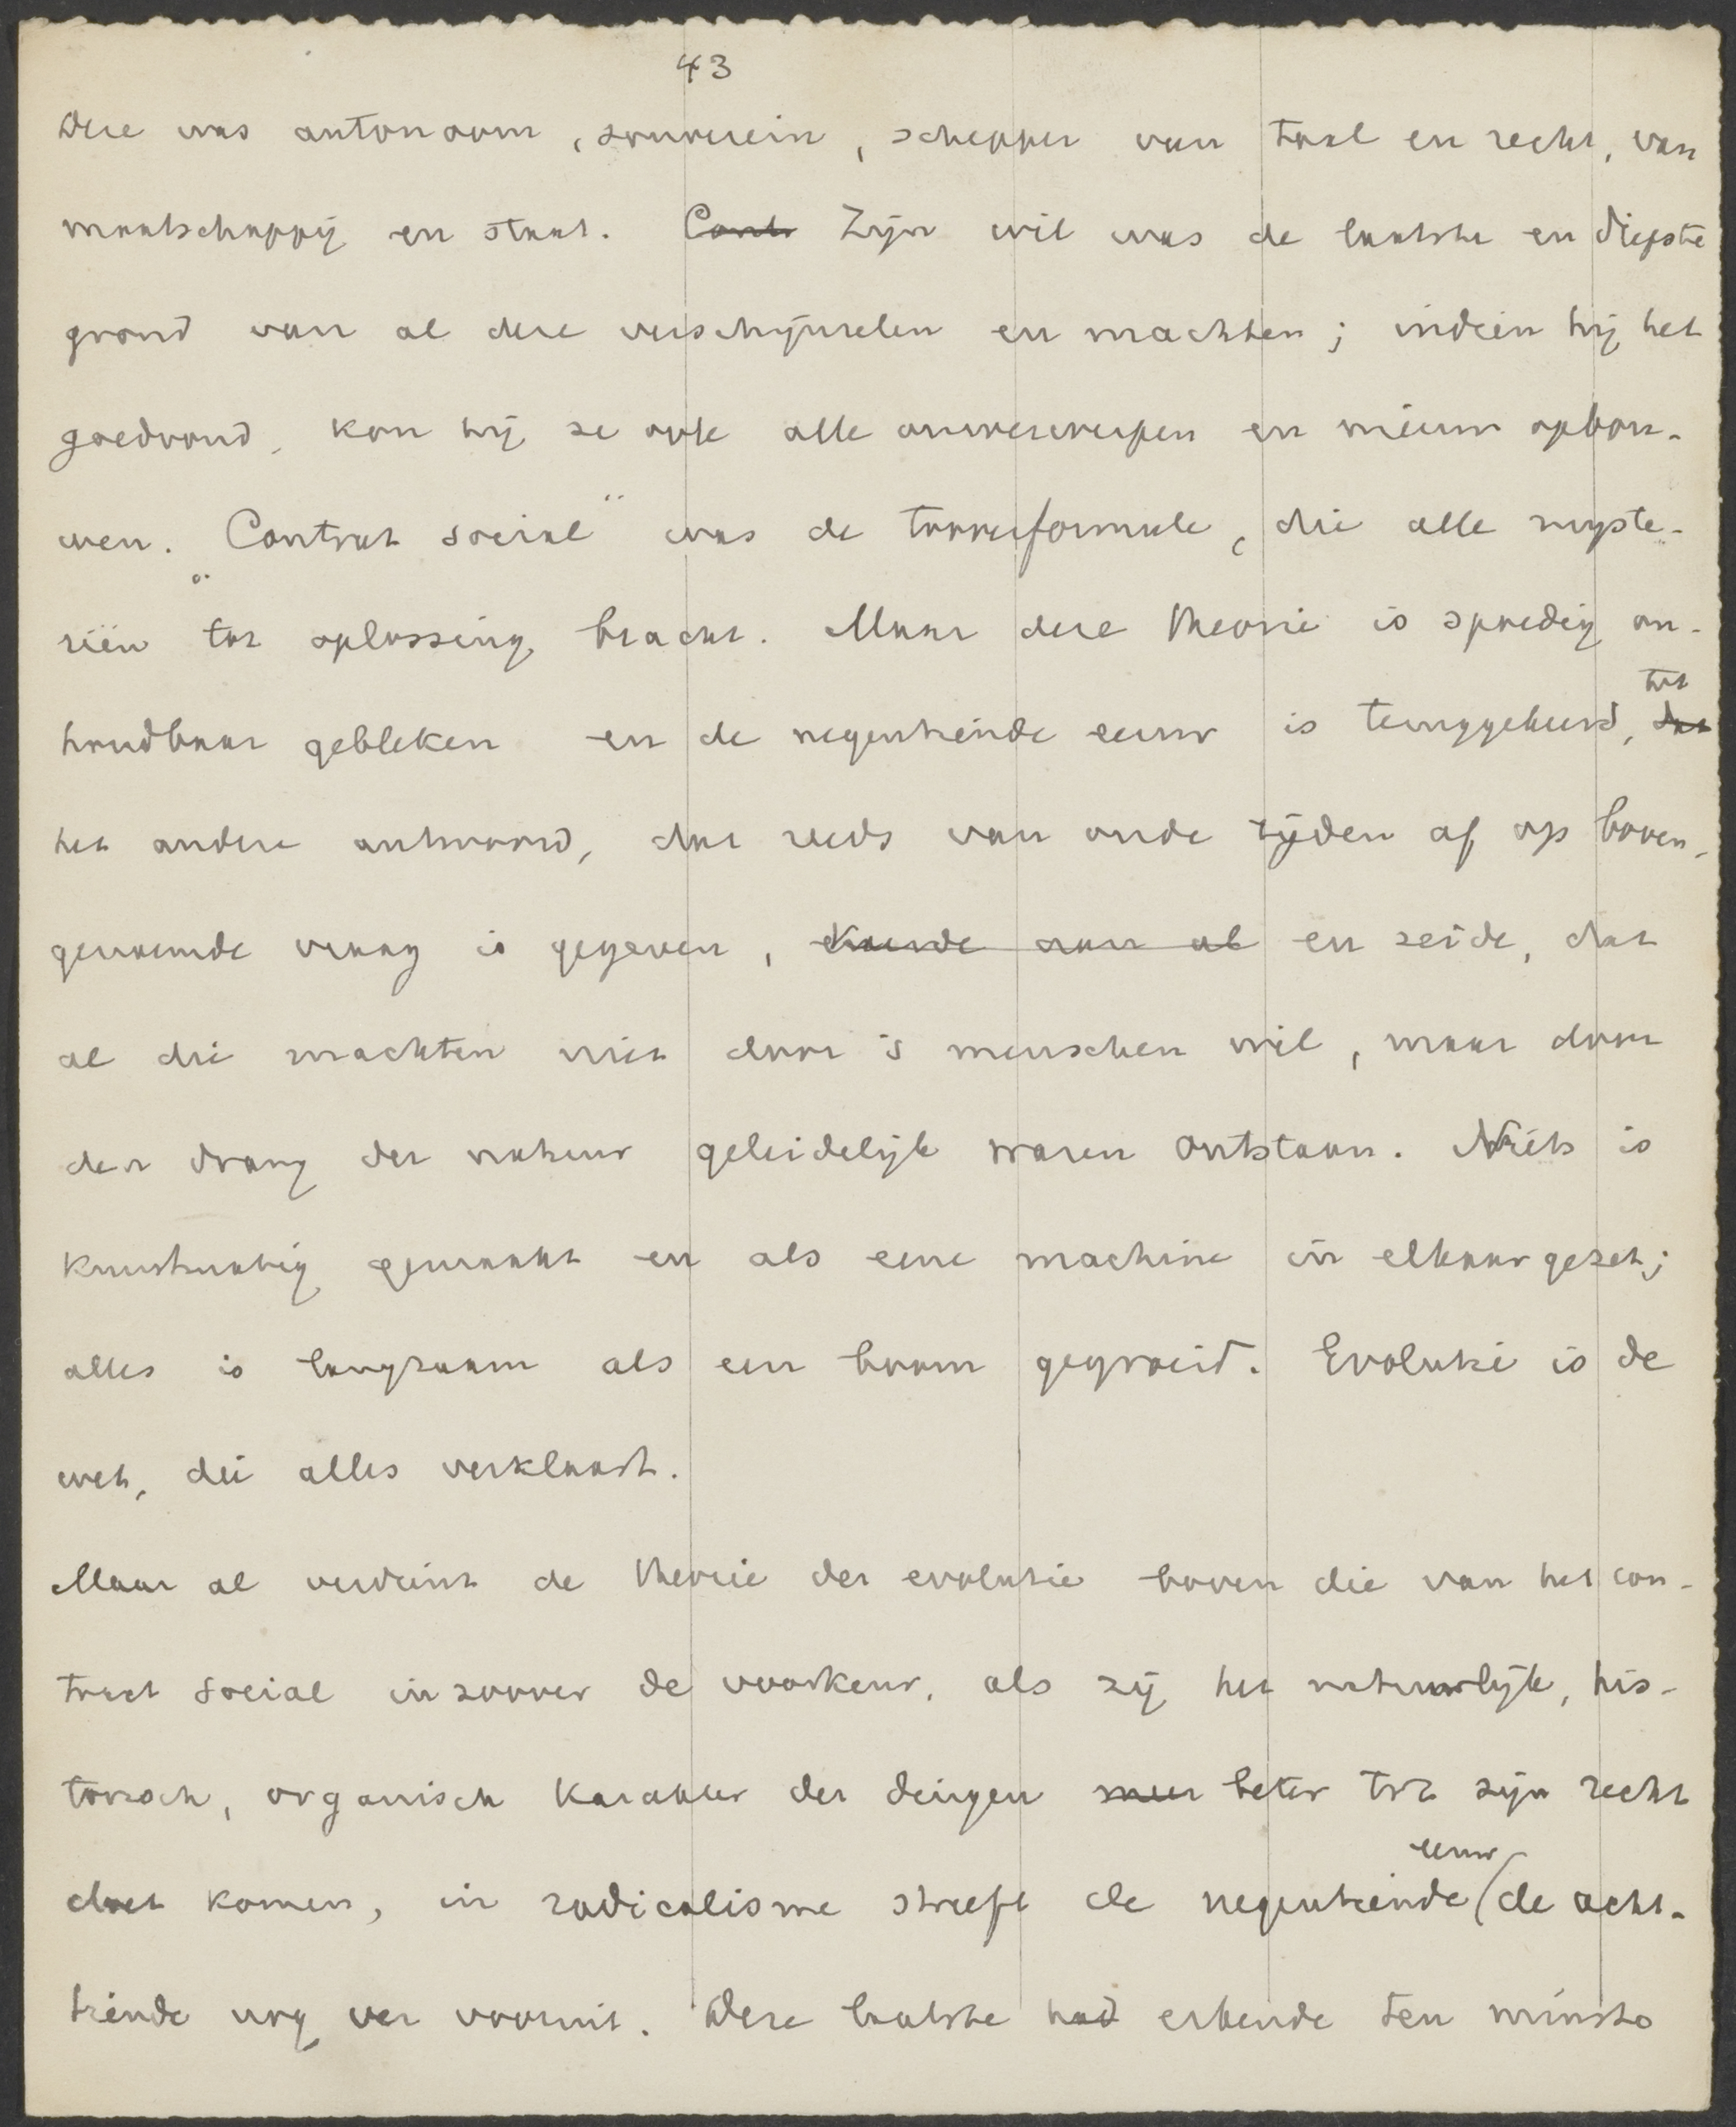 43
Deze was autonoom, souverein, schepper van taal en recht, van
maatschappij en staat. Contr Zijn wil was de laatste en diepste
grond van al deze verschijnselen en machten; indien hij het
goedvond, kon hij ze ook alle omverwerpen en nieuw opbou-
wen. „Contrat social" was de tooverformule, die alle myste-
riën tot oplossing bracht. Maar deze theorie is spoedig on-
houdbaar gebleken en de negentiende eeuw is teruggekeerd, dat tot
het andere antwoord, dat reeds van oude tijden af op boven-
genoemde vraag is gegeven, en zeide, dat
al die machten niet door 's menschen wil, maar door
den drang der natuur geleidelijk waren ontstaan. Niets is
kunstmatig gemaakt en als eene machine in elkaar gezet;
alles is langzaam als een boom gegroeid. Evolutie is de
wet, die alles verklaart.
Maar al verdient de theorie der evolutie boven die van het con-
tract social in zoover de voorkeur, als zij het natuurlijk, his-
torisch, organisch karakter der dingen meer beter tot zijn recht
doet komen, in radicalisme streeft de negentiende eeuw de acht-
tiende nog ver vooruit. Deze laatste had erkende ten minste